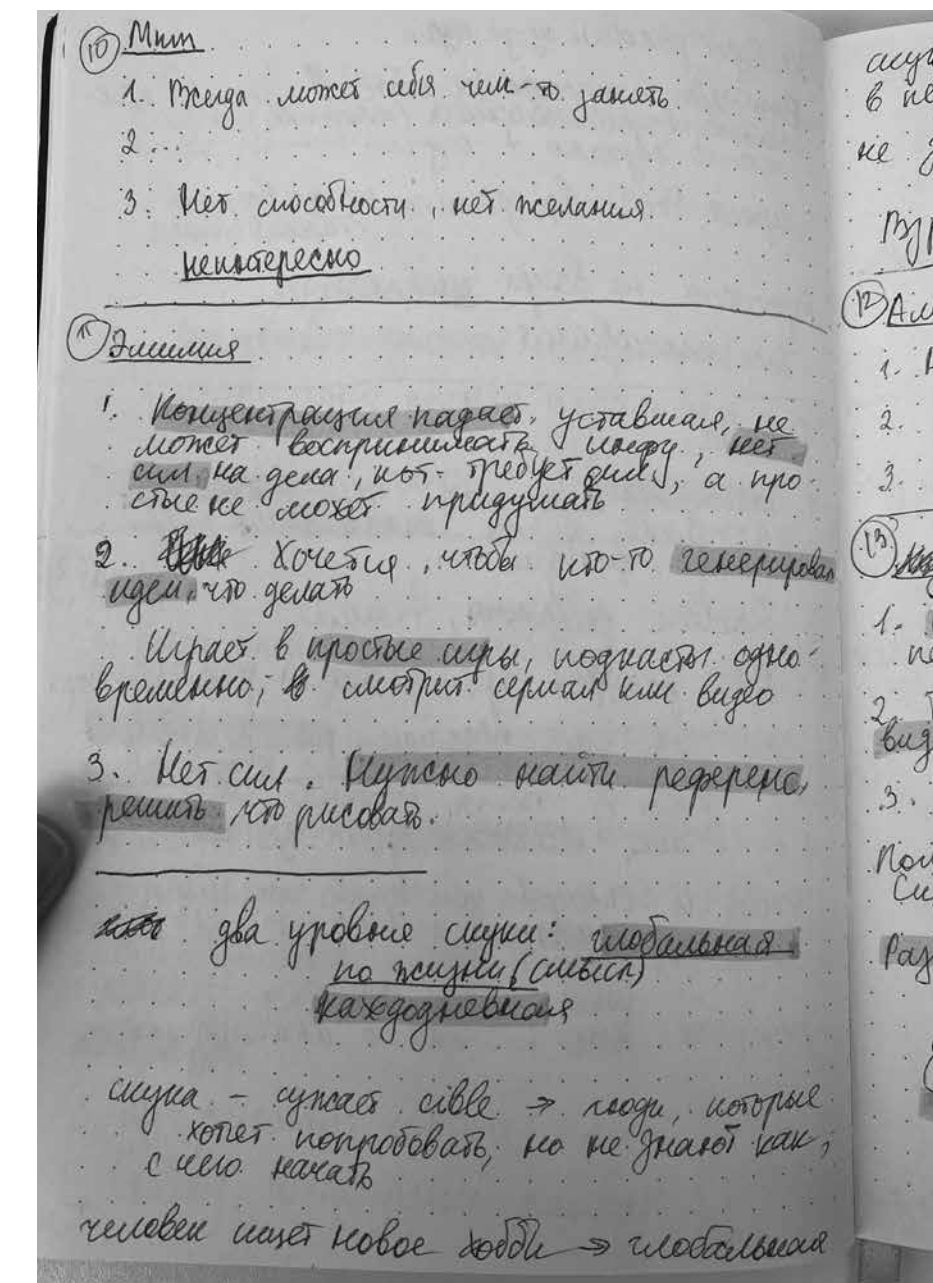 10 Мит
1. Всегда может себя чем-то занять
2...
3. Нет способности, нет желания.
неинтересно
11 Эмилия
1. Концентрация падает, уставшая, не
может воспринимать инфу, нет
сил на дела, кот. требует сил, а про-
стые не может придумать
2. Хочется, чтобы кто-то генерировал
идеи, что делать
Играет в простые игры, подкасты одно-
временно, смотрит сериал или видео
3. Нет сил. Нужно найти референс,
решить что рисовать.
два уровня скуки: глобальная
по жизни (смысл)
каждодневная
скука – сужает cible → люди, которые
хотят попробовать, но не знают как,
с чего начать
человек ищет новое хобби → глобальная
в
не
12
1.
2.
3.
13
1.
2.
вид
3.